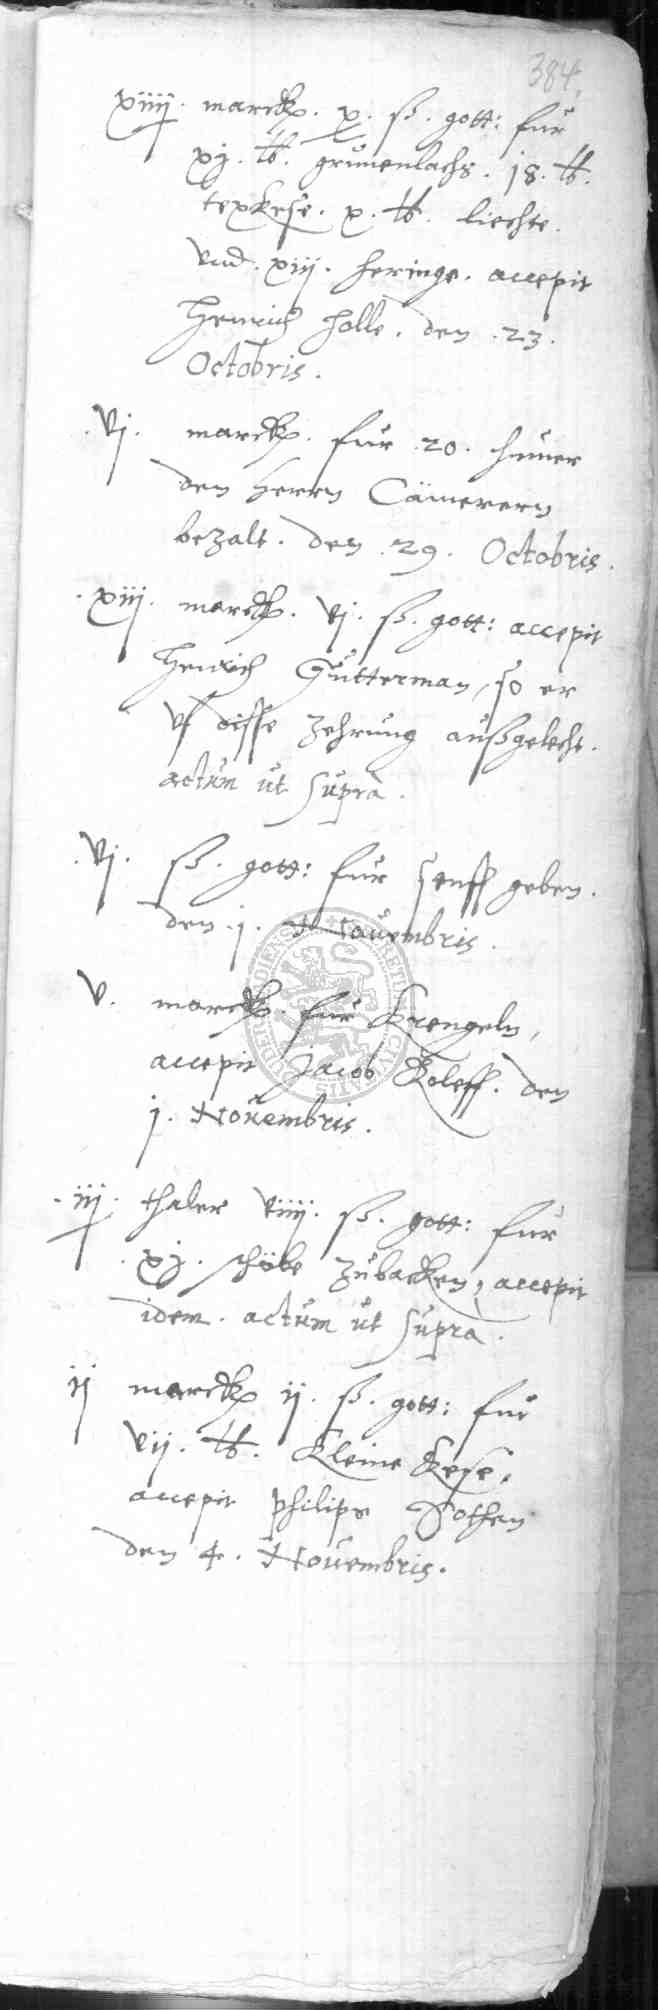 384.
xiiij. marck. x. ß. gott: fur
xj. ℔. grunenlachs. 18. ℔.
texkese. x. ℔. liechte.
vnd. xiij. heringe. accepit
Heinrich Holle. den .23.
Octobris.
.vj. marck. fur .20. huner
den Herrn Cämerern
bezalt. den .29. Octobris.
.xiij. marck. vj. ß. gott: accepit
Henrich Gütterman, so er
vf disse zehrung außgelecht.
actum ut supra.
.vj. ß. gott: fur senff geben.
den .j. Nouembris.
v. marck. fur Krengeln,
accepit Jacob Koleff. den
j. Nouembris.
.iij. thaler viiij. ß. gott: fur
.xj. schöke zubacken, accepit
idem. actum ut supra.
ij marck ij. ß. gott: fur
vij. ℔. Kleine Kese.
accepit philips Dothen
den 4. Nouembris.